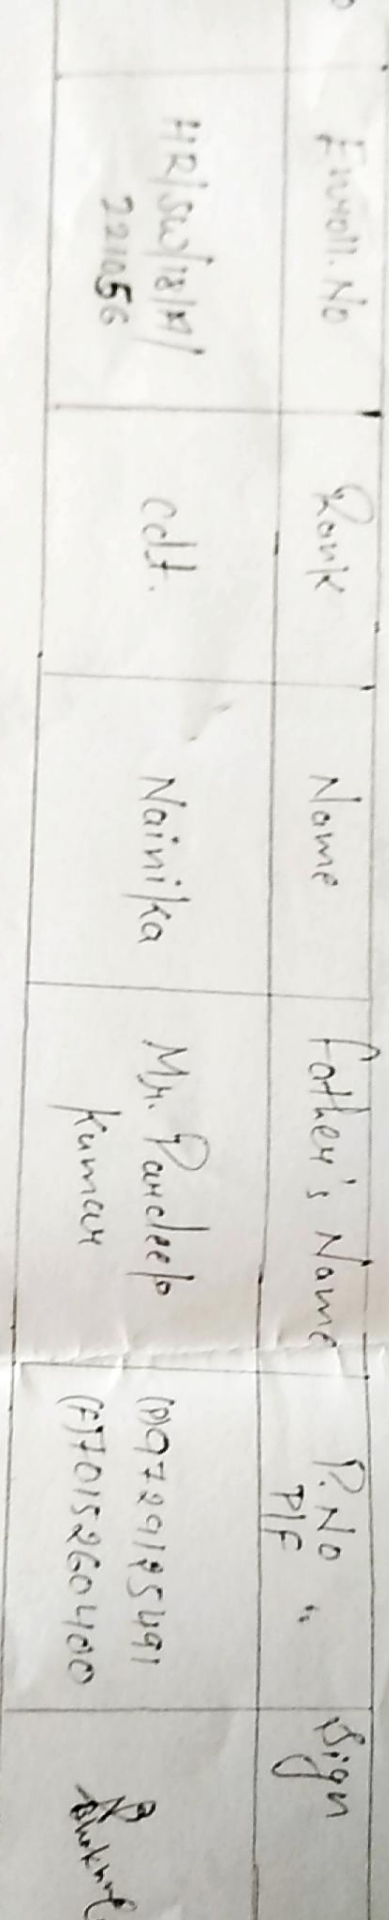 Enroll. No
Rank
Name
Father's Name
P.No "
P/F
Sign
HR/SW/18/A/
221056
Cdt.
Nainika
Mr. Pardeep
Kumar
(P)9729125491
(F)7015260400